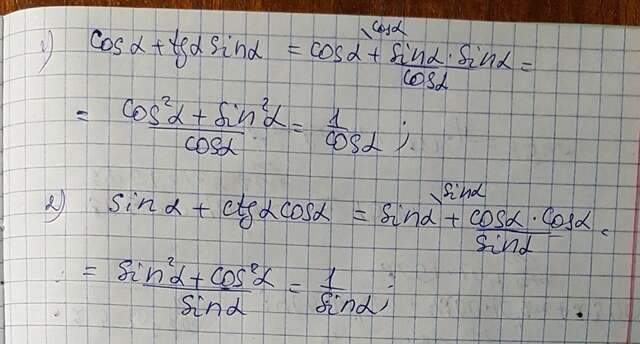 1) cosα + tgα sinα = cosα\cosα + sinα·sinα/cosα =
= cos²α + sin²α/cosα = 1/cosα ;
2) sinα + ctgα cosα = sinα\sinα + cosα·cosα/sinα =
= sin²α + cos²α/sinα = 1/sinα ;